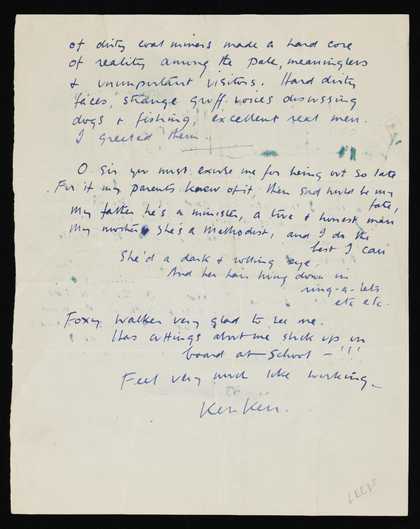 of dirty coal miners made a hard core
of reality among the pale, meaningless
& unimportant visitors. Hard dirty
faces, strange gruff voices discussing
dogs & fishing, excellent real men.
I greeted them.
O Sir you must excuse me for being out so late
For if my parents knew of it, then sad would be my
fate,
My father he's a minister, a true & honest man
My mother she's a Methodist, and I do the
best I can
She'd a dark & rolling eye.
And her hair hung down in
ring-a-lets
etc etc.
Foxy Walker very glad to see me.
Has cuttings about me stuck up on
board at School – !!!
Feel very much like working –
Ken Ken.